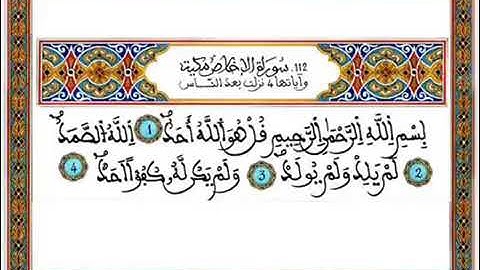 112. سورة الإخلاص مكية
وآياتها 4 نزلت بعد الناس
بِسْمِ اِللَّهِ اِلرَّحْمَٰنِ اِلرَّحِيمِ قُلْ هُوَ اَللَّهُ أَحَدٌ 1 اَللَّهُ اُلصَّمَدُ
2 لَمْ يَلِدْ وَلَمْ يُولَدْ 3 وَلَمْ يَكُن لَّهُۥ كُفُؤاً اَحَدٌ 4